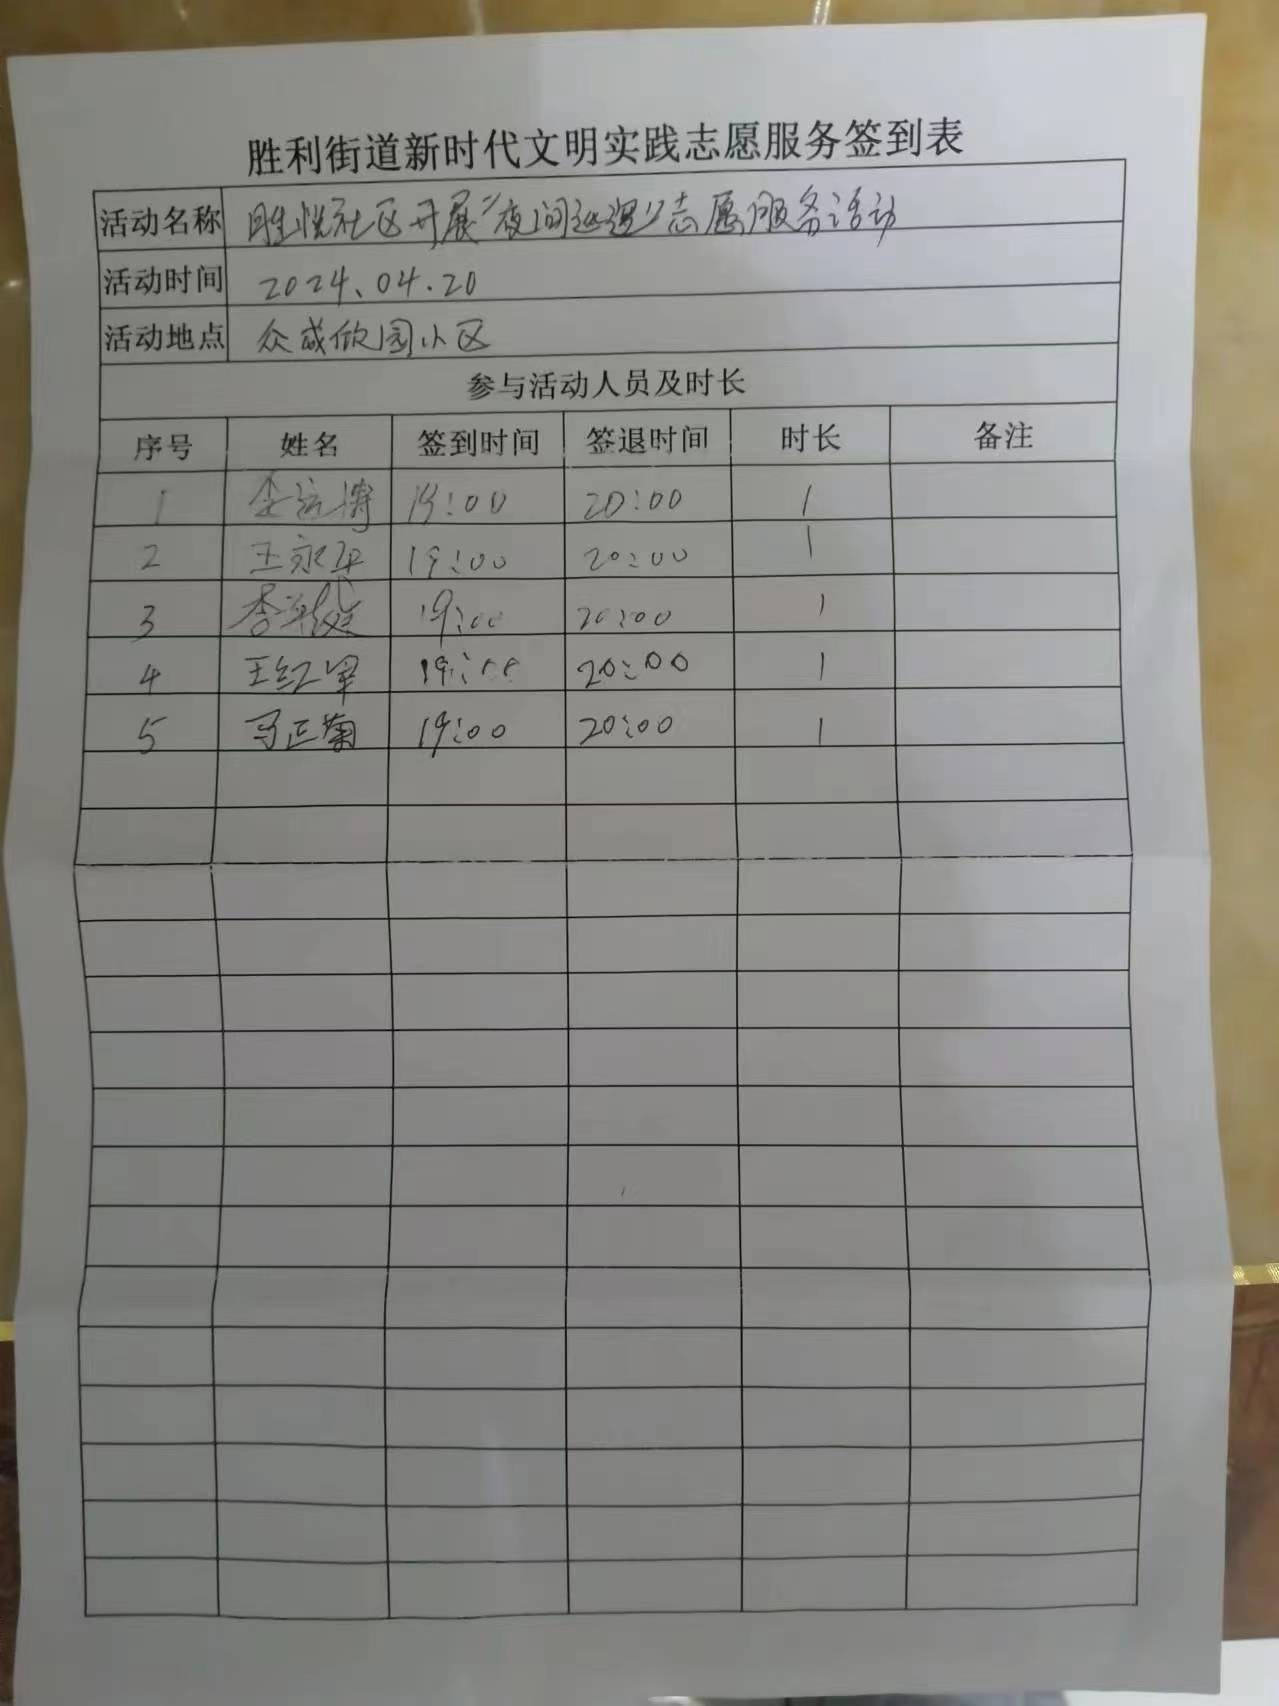 胜利街道新时代文明实践志愿服务签到表
活动名称 胜悦社区开展“夜间巡逻”志愿服务活动
活动时间 2024.04.20
活动地点 众成欣园小区
参与活动人员及时长
序号 姓名 签到时间 签退时间 时长 备注
1 19:00 20:00 1
2 王永平 19:00 20:00 1
3 19:00 20:00 1
4 王红军 19:00 20:00 1
5 马正菊 19:00 20:00 1